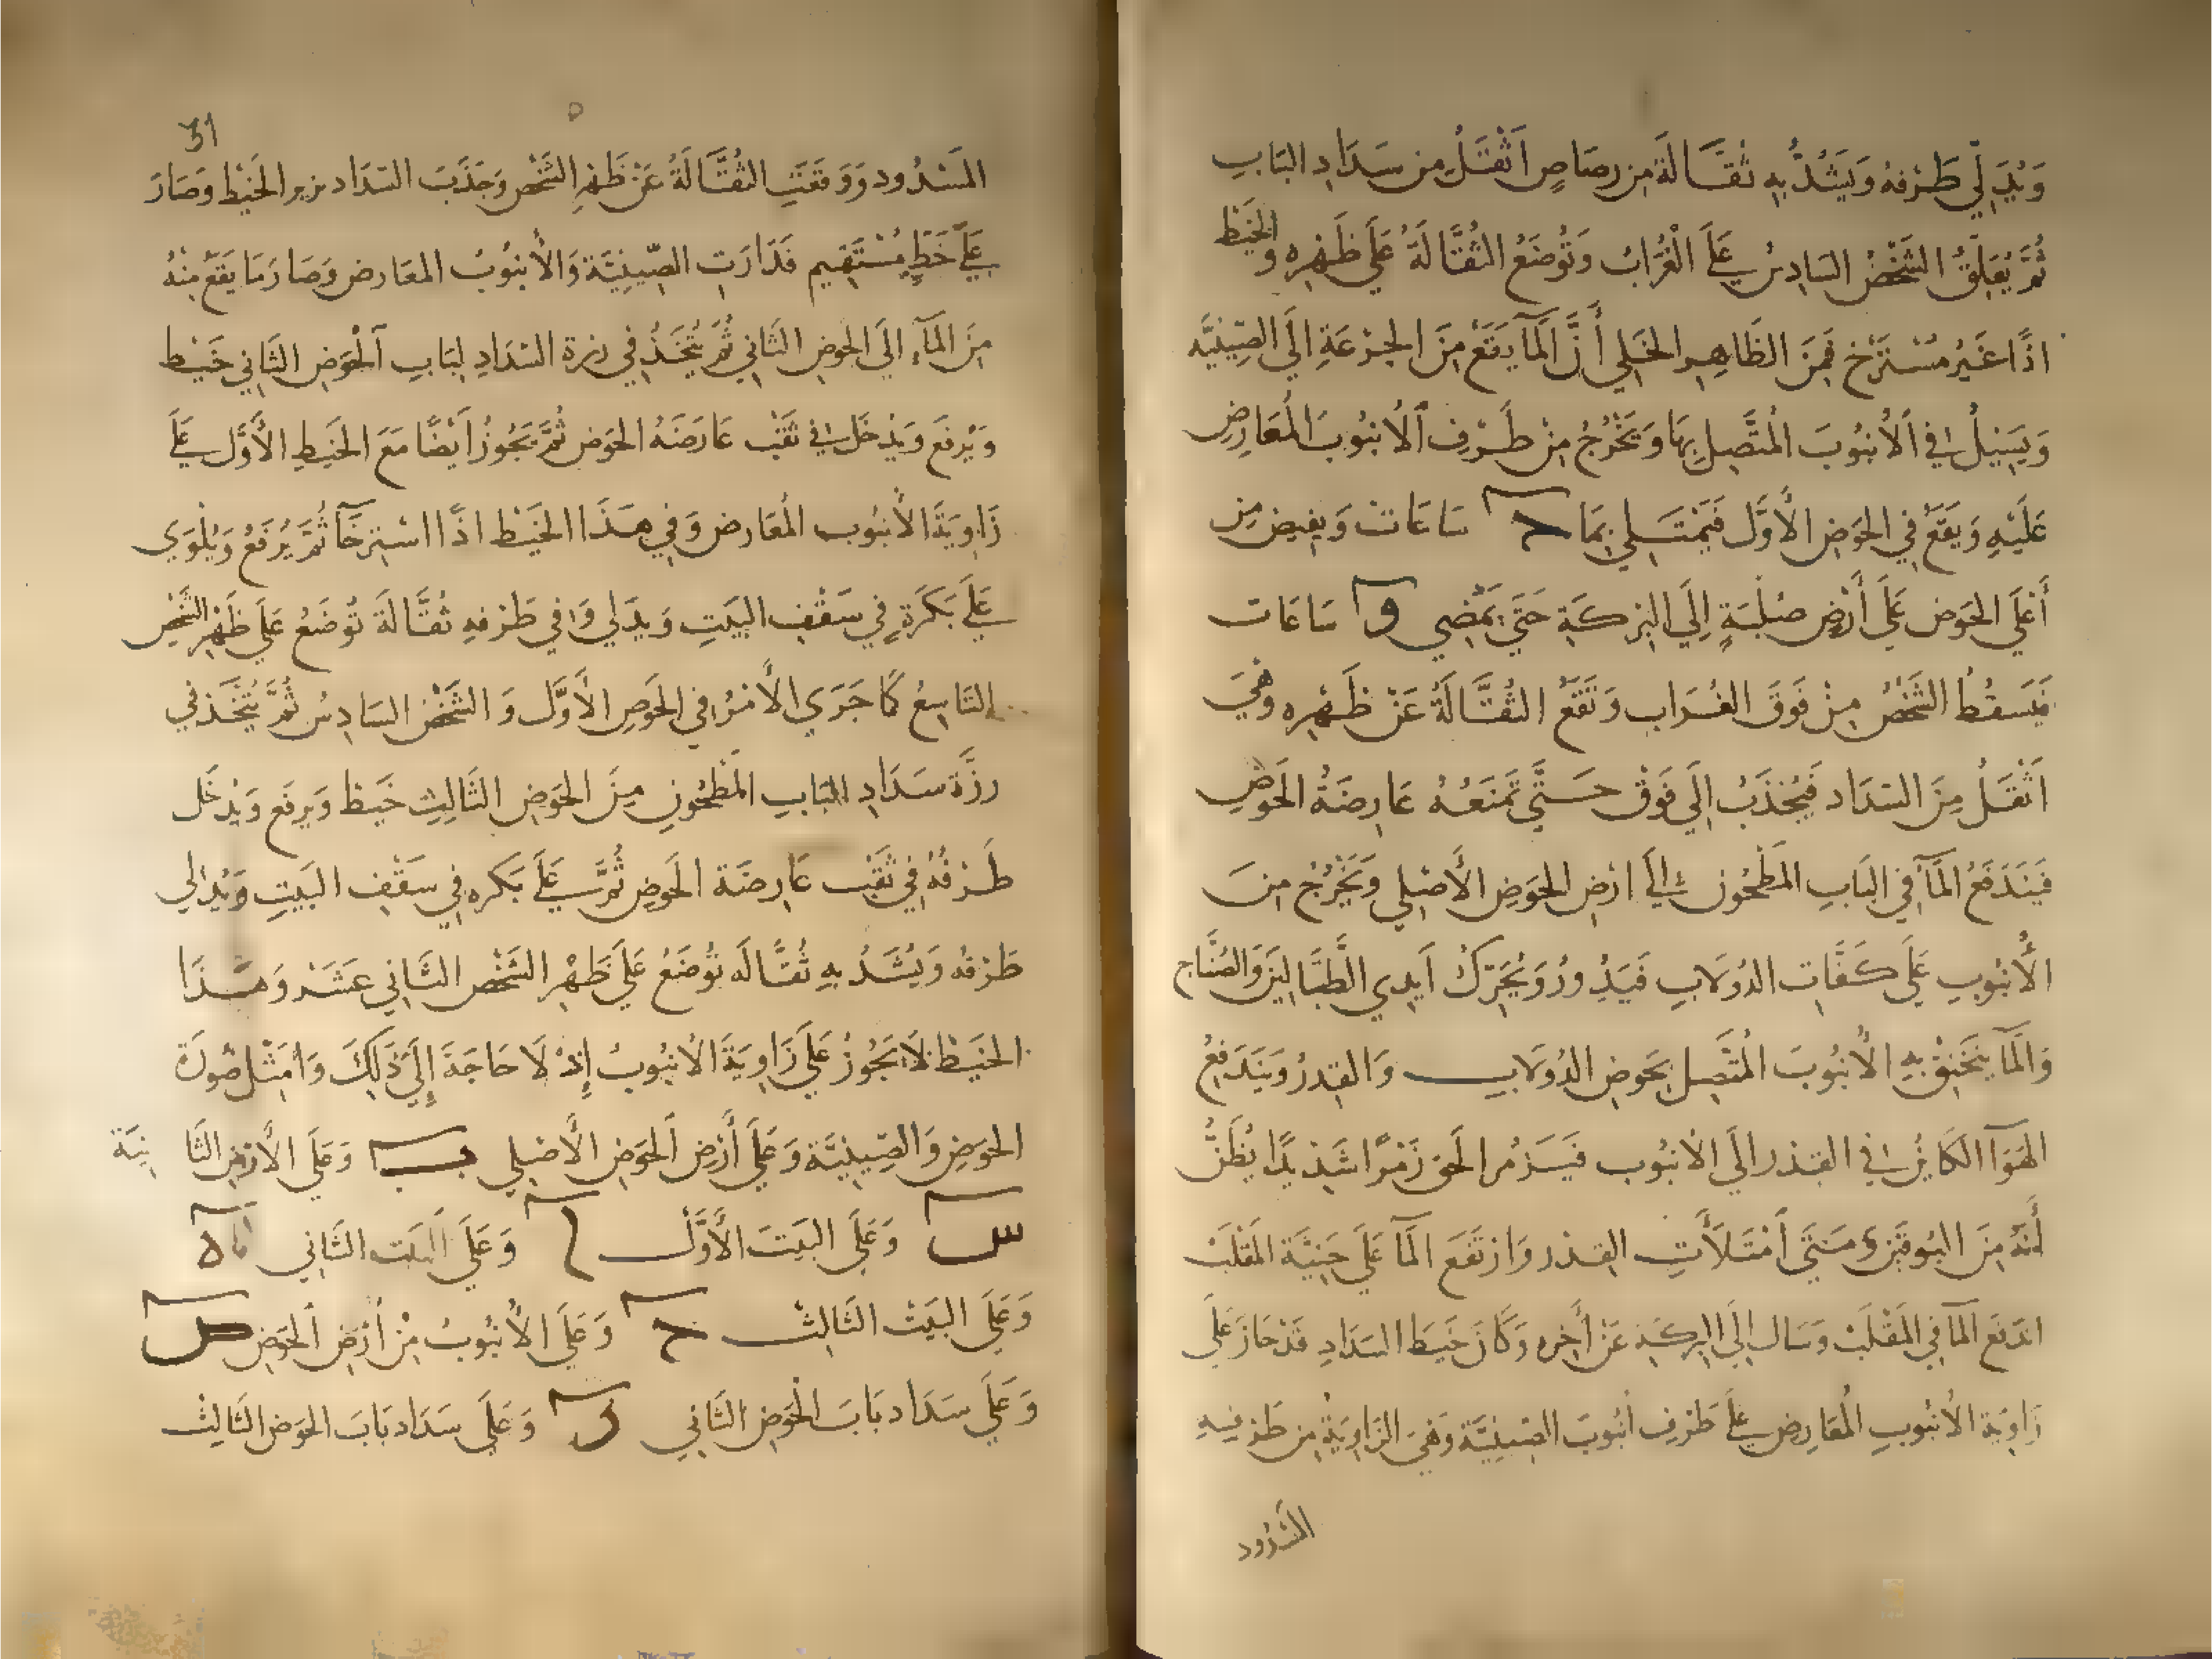 وَيُدَلِّي طَرْفهُ وَيَشُدُّ بِهِ ثقَّالَة مِن رصَاصٍ اَثْقَلُ مِن سَدَادِ البَابِ
ثُمَّ يُعَلَّقُ الشَّخْصُ السَادِسُ عَلَى الْغُرَابُ وَتُوضَعُ الثُقَّالَةُ عَلَى ظَهْرِه وَالخَيْط
اذًا غَيرُ مُسْتَرْخ فَمِنَ الظَاهِر الجَلي أَنَّ المَآ يَقَعُ مِنَ الجزعَةِ اِلَى الصِّينيَّه
وَيَسِيْلُ فِي الأُنبُوبَ المُتَّصِلِ بِهَا وَيَخْرُجُ مِنْ طَرَفِ الأُنبُوبَ المُعَارِضِ
عَلَيْهِ وَيَقَعُ فِي الحَوَضِ الأَوَّل فَيَمْتَلي بِمَا ح سَاعَاتْ وَيفِيضُ مِن
أَعْلَى الحَوَض عَلَى أَرْضٍ صُلْبَةٍ اِلَى البِركَةِ حَتَى يَمْضِي و سَاعَات
فَيَسقُطُ الشَّخْصُ مِنْ فَوَقَ الغُرَاب وَتَقَعُ الثُقَّالَةُ عَنْ ظَهْرِه وَهْيَ
اَثْقَلُ مِنَ السَدَاد فَيُجْذَبُ اِلَى فَوْق حَتَّى تَمنَعهُ عَارِضَةُ الحَوضِ
فَيَندَفعُ المَآ فِي البَابِ المَطْحُون إِلَى ارْضِ الحَوضِ الأَصْلِي وَيَخْرُجُ مِنَ
الأُنْبُوبِ عَلَى كَفَّات الدُولَابِ فَيَدُورُ وَيُحَرِّكُ اَيدِي الطَّبَّالِينَ وَالصُنَّاج
وَالمَآ يَخنِقُ بِهِ الأُنبُوبَ المُتَّصِل بحَوضِ الدُولَابِ وَالقِدرُ وَيَندَفعُ
الهَوَآ الكَايِن فِي القِدر الَى الأُنبُوب فَيَزمُر الحَق زَمْرًا شَدِيْدًا يُظَنُّ
أَنَّهُ مِنَ البُوقَيْن وَمَتَى اَمْتَلَأَتِ القِدْر وَارْتَفَعَ المَآ عَلَى حَنِيَّة المَقْلَبْ
اندَفَع المَآ في المَقْلَبْ وَسَال اِلَى البركَةِ عَنْ أَخِرِه وَكَانَ خَيْط السَدَادِ قَدْ جَازَ عَلَى
زَاوِيَة الأُنبُوبِ المُعَارِض عَلَى طَرْفِ أنبُوبَ الصِّينِيَّة وَهْيَ الزَاوِيَةُ مِن طَرْفِهِ
المَسْدُود
31
المَسْدُود وَوَقَعَتِ الثُقَّالَةُ عَنْ ظَهْرِ الشَّخْص وَجَذَبَ السَدَاد بزبر الخَيْط وَصَارَ
عَلَى خَطٍ مُسْتَقِيم فَدَارَتِ الصِّينِيَّة وَالأُنبُوبُ المعَارض وَصَارَ مَا يَقَعُ مِنْهُ
مِنَ المَآءِ اِلَى الحَوضِ الثَاني ثُمَّ يُتَّخَذُ في رزة السَدَادِ لِبَابِ الْحَوَضِ الثَاني خَيْط
وَيُرفَعَ وَيُدخَل في ثَقْبِ عَارضَهُ الحَوض ثُمَّ يَجُوزُ اَيْضًا مَعَ الخَيْطِ الأَوَّل عَلَى
زَاوِيَةَ الأُنبُوب المُعَارض وَفِي هَذَا الخَيْط اذًا اسْتِرخَآ ثُمَّ يُرْفَعُ وَيُلْوَي
عَلَى بَكَرَةٍ فِي سَقْفِ البَيتِ وَيدَلي وَفي طَرْفِهِ ثُقَّالَة تُوضَعُ عَلَى ظَهْرِ الشَّخْصِ
التَاسِعُ كَمَا جَرَي الأَمْرُ في الحَوضِ الأَوَّل وَ الشَّخْصُ السَادِسُ ثُمَّ يُتَّخَذ في
رزَّة سَدَادِ البَابِ المَطْحُونِ مِنَ الحَوَضِ الثَالِثِ خَيط وَيرفَع وَيُدخَل
طَرْفُهُ فِي ثَقْب عَارِضَة الحَوضِ ثُمَّ عَلَى بَكَرِه فِي سَقْفِ البَيتِ وَيُدَلي
طَرْفه وَيُشَدُّ بِهِ ثُقَّالَه تُوضَعُ عَلَى ظَهْرِ الشَّخْص الثَانِي عَشَرْ وَهَذَا
الخَيْط لَا يَجُوزُ عَلَى زَاوِيَةَ الأُنبُوبُ إِذْ لَا حَاجَةَ إِلَى ذَلِكَ وَامَثِّل صُورَة
الحَوضِ وَالصِّينِيَّة وَعَلَى أَرْضِ الحَوَضِ الأَصْلِي ب وَعَلَى الأَرْضِ الثَا نِيَة
س وَعَلَى البَيَتَ الأَوَّل ا وَعَلَى البَيَت الثَانِي ه
وَعَلَى البَيَتْ الثَالِثْ ح وَعَلَى الأُنْبُوبُ مِنْ أرْضِ الحَوَضِ ص
وَعَلَى سَدَاد بَابَ الحَوَضِ الثَاني ك وَعَلَى سَدَاد بَابَ الحَوَض الثَالِثْ